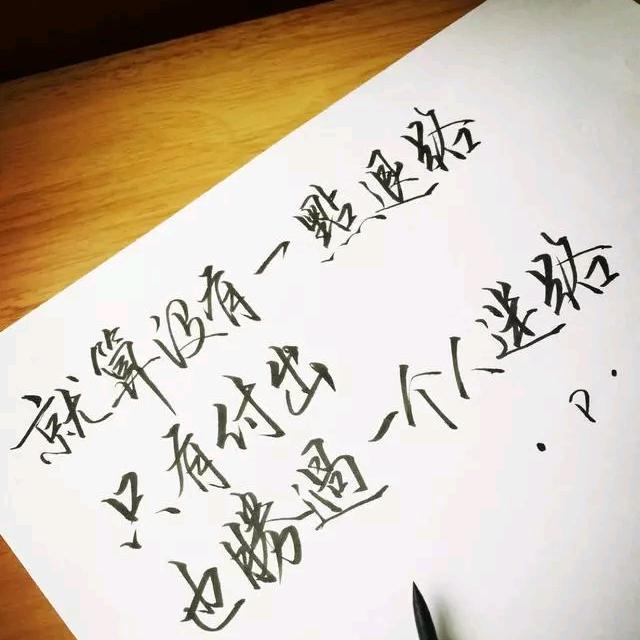 就算沒有一點退路
只有付出
也勝過一个人迷路